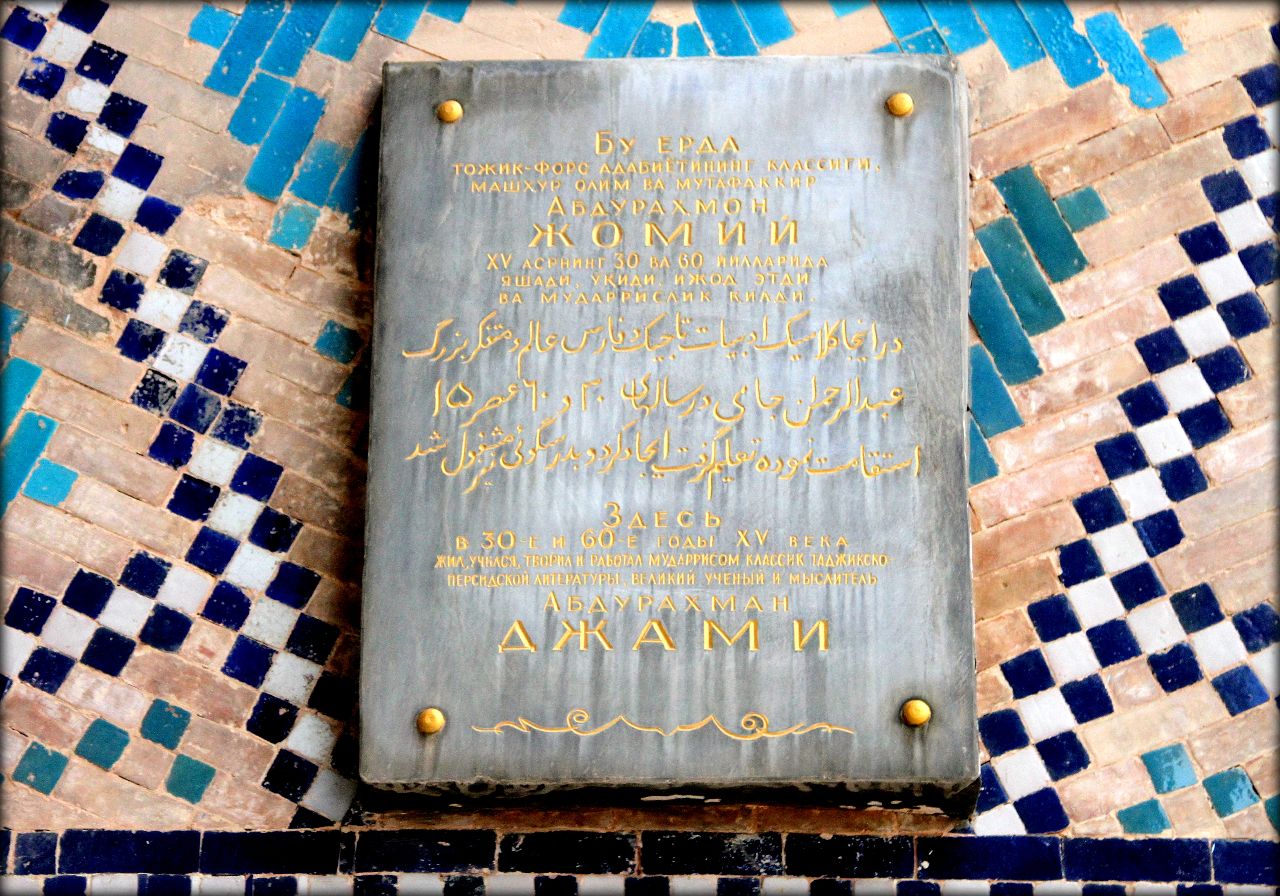 Бу ерда
тожик-форс адабиётининг классиги.
машҳур олим ва мутафаккир
Абдураҳмон
ЖОМИЙ
XV асрнинг 30 ва 60 йилларида
яшади, ўқиди, ижод этди
ва мударрислик қилди.
در اینجا کلاسیک ادبیات تاجیک فارس عالم و متفکر بزرگ
عبدالرحمان جامی در سالهای ۳۰ و ۶۰ عصر ۱۵
استقامت نموده تعلیم گرفت ایجاد کرد و بدرسگوئی نیز مشغول شد
Здесь
в 30-е и 60-е годы XV века
жил, учился, творил и работал мударрисом классик таджикско-
персидской литературы, великий ученый и мыслитель
Абдурахман
ДЖАМИ